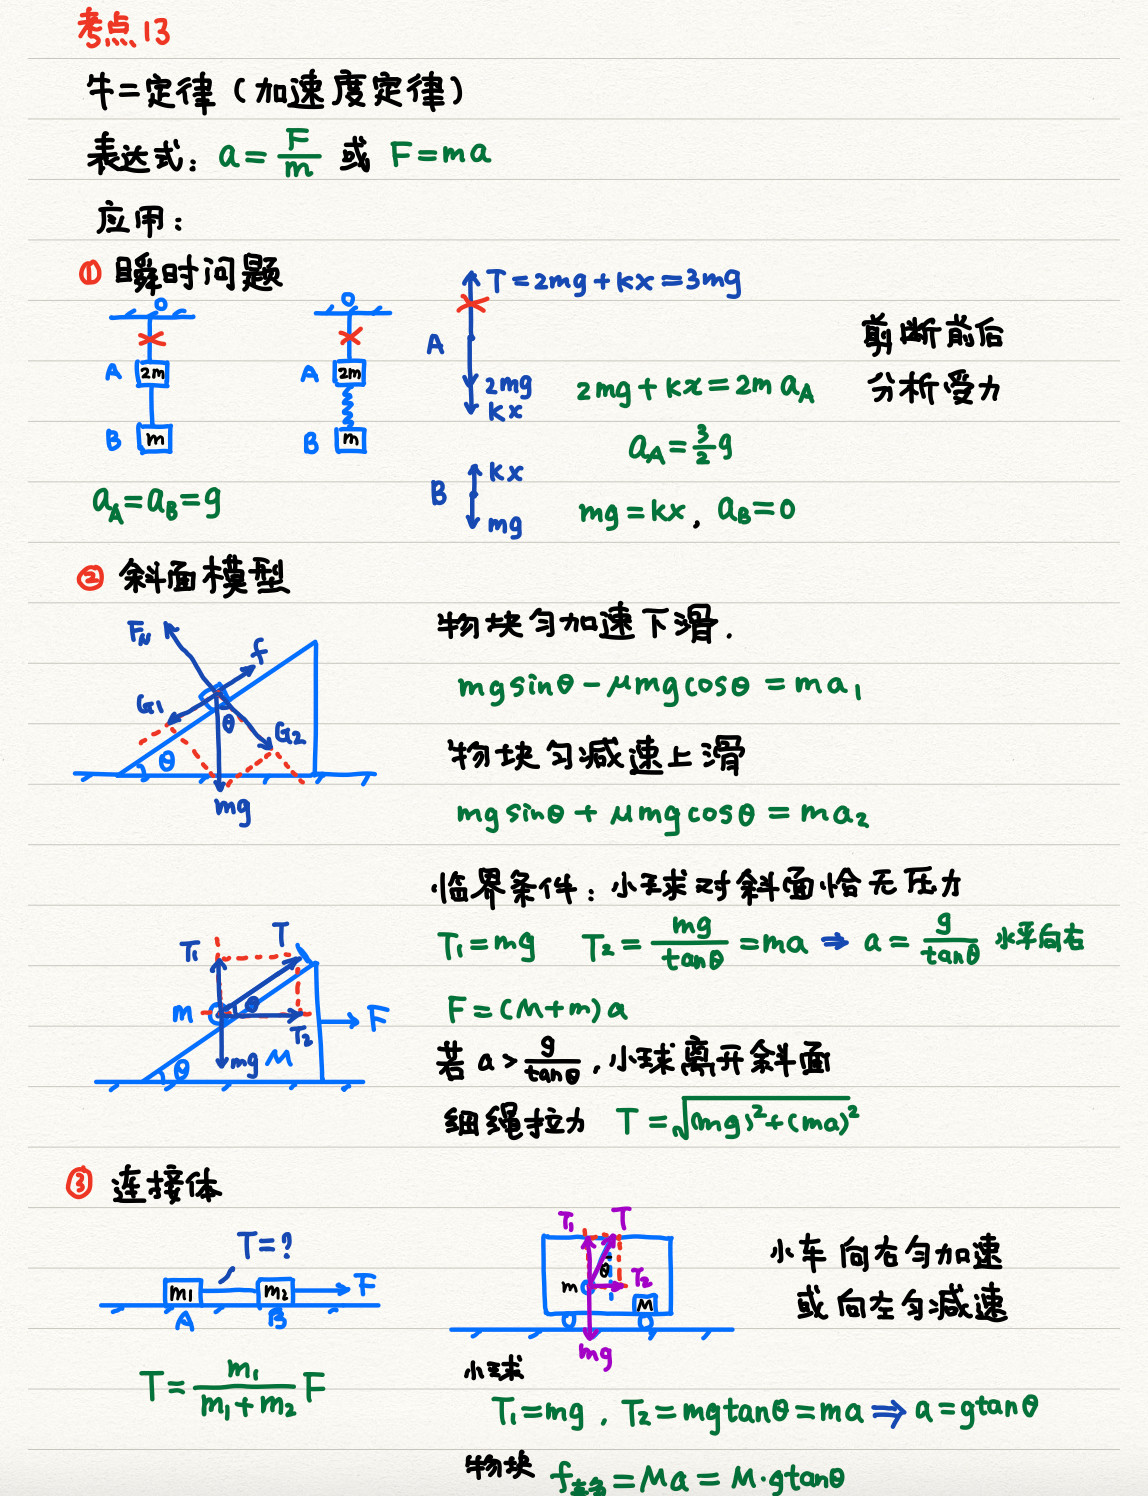 考点13
牛二定律（加速度定律）
表达式：a = F/m 或 F = ma
应用：
① 瞬时问题
O
A 2m
B m
a_A = a_B = g
O
A 2m
B m
T = 2mg + kx = 3mg
A
2mg
kx
2mg + kx = 2m a_A
a_A = 3/2 g
B
kx
mg
mg = kx, a_B = 0
剪断前后
分析受力
② 斜面模型
F_N
f
G₁
θ
G₂
θ
mg
物块匀加速下滑.
mgsinθ - μmgcosθ = ma₁
物块匀减速上滑
mgsinθ + μmgcosθ = ma₂
T₁
T
m
θ
T₂
F
mg
M
θ
临界条件：小球对斜面恰无压力
T₁ = mg T₂ = mg/tanθ = ma ⇒ a = g/tanθ 水平向右
F = (M+m)a
若 a > g/tanθ, 小球离开斜面
细绳拉力 T = √(mg)²+(ma)²
③ 连接体
T = ?
m₁ m₂ F
A B
T = m₁/(m₁+m₂) F
T₁ T
θ
m
T₂
M
mg
小车向右匀加速
或向左匀减速
小球
T₁ = mg, T₂ = mgtanθ = ma ⇒ a = gtanθ
物块 f静 = Ma = M·gtanθ